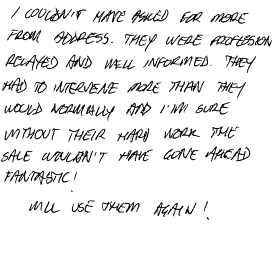 I COULDN'T HAVE ASKED FOR MORE
FROM ADDRESS. THEY WERE PROFESSION
RELAYED AND WELL INFORMED. THEY
HAD TO INTERVENE MORE THAN THEY
WOULD NORMALLY AND I'M SURE
WITHOUT THEIR HARD WORK THE
SALE WOULDN'T HAVE GONE AHEAD
FANTASTIC!
WILL USE THEM AGAIN!